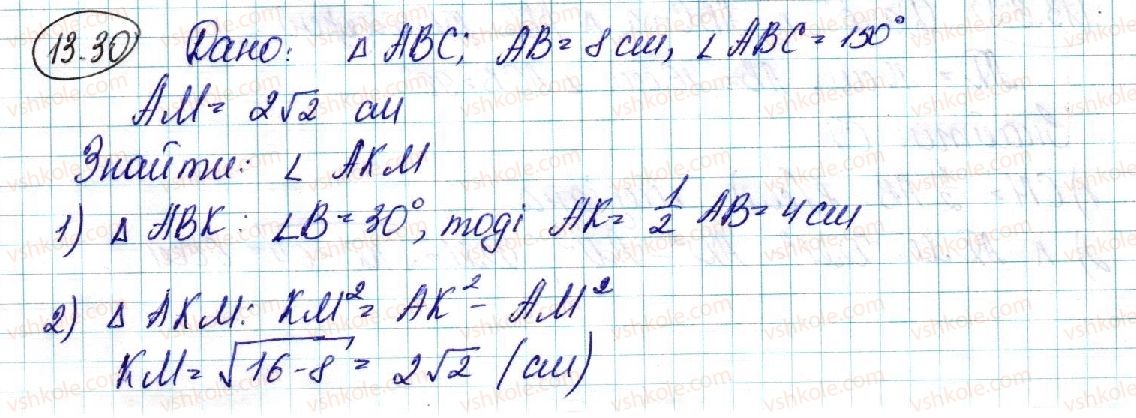 13.30 Дано: △ ABC; AB = 8 см, ∠ ABC = 150°
AM = 2√2 см
Знайти: ∠ AKM
1) △ ABK: ∠B = 30°, тоді AK = 1/2 AB = 4 см
2) △ AKM: KM² = AK² - AM²
KM = √16-8 = 2√2 (см)